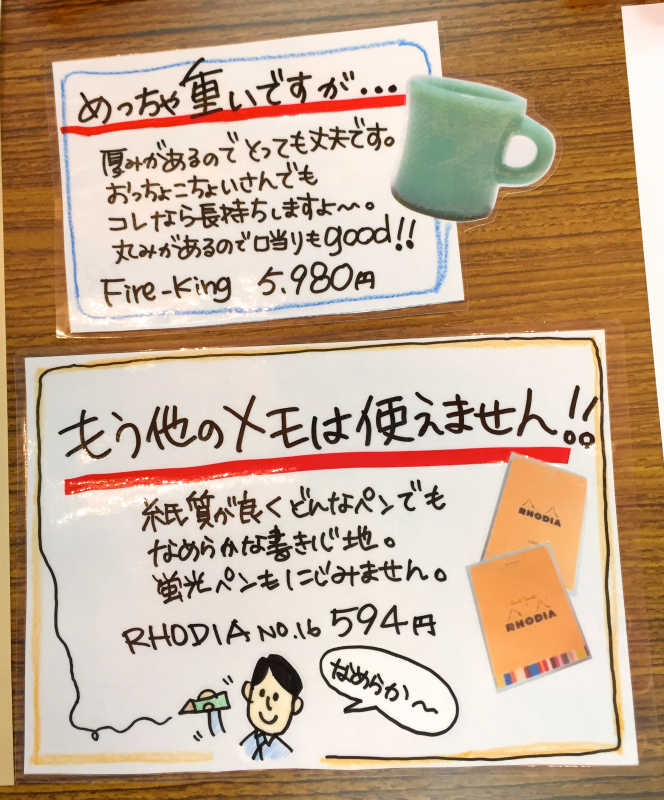 めっちゃ重いですが...
厚みがあるのでとっても丈夫です。
おっちょこちょいさんでも
コレなら長持ちしますよ〜。
丸みがあるので口当りもgood!!
Fire-King 5.980円
もう他のメモは使えません!!
紙質が良くどんなペンでも
なめらかな書き心地。
蛍光ペンもにじみません。
RHODIA NO.16 594円
RHODIA
RHODIA
なめらか〜